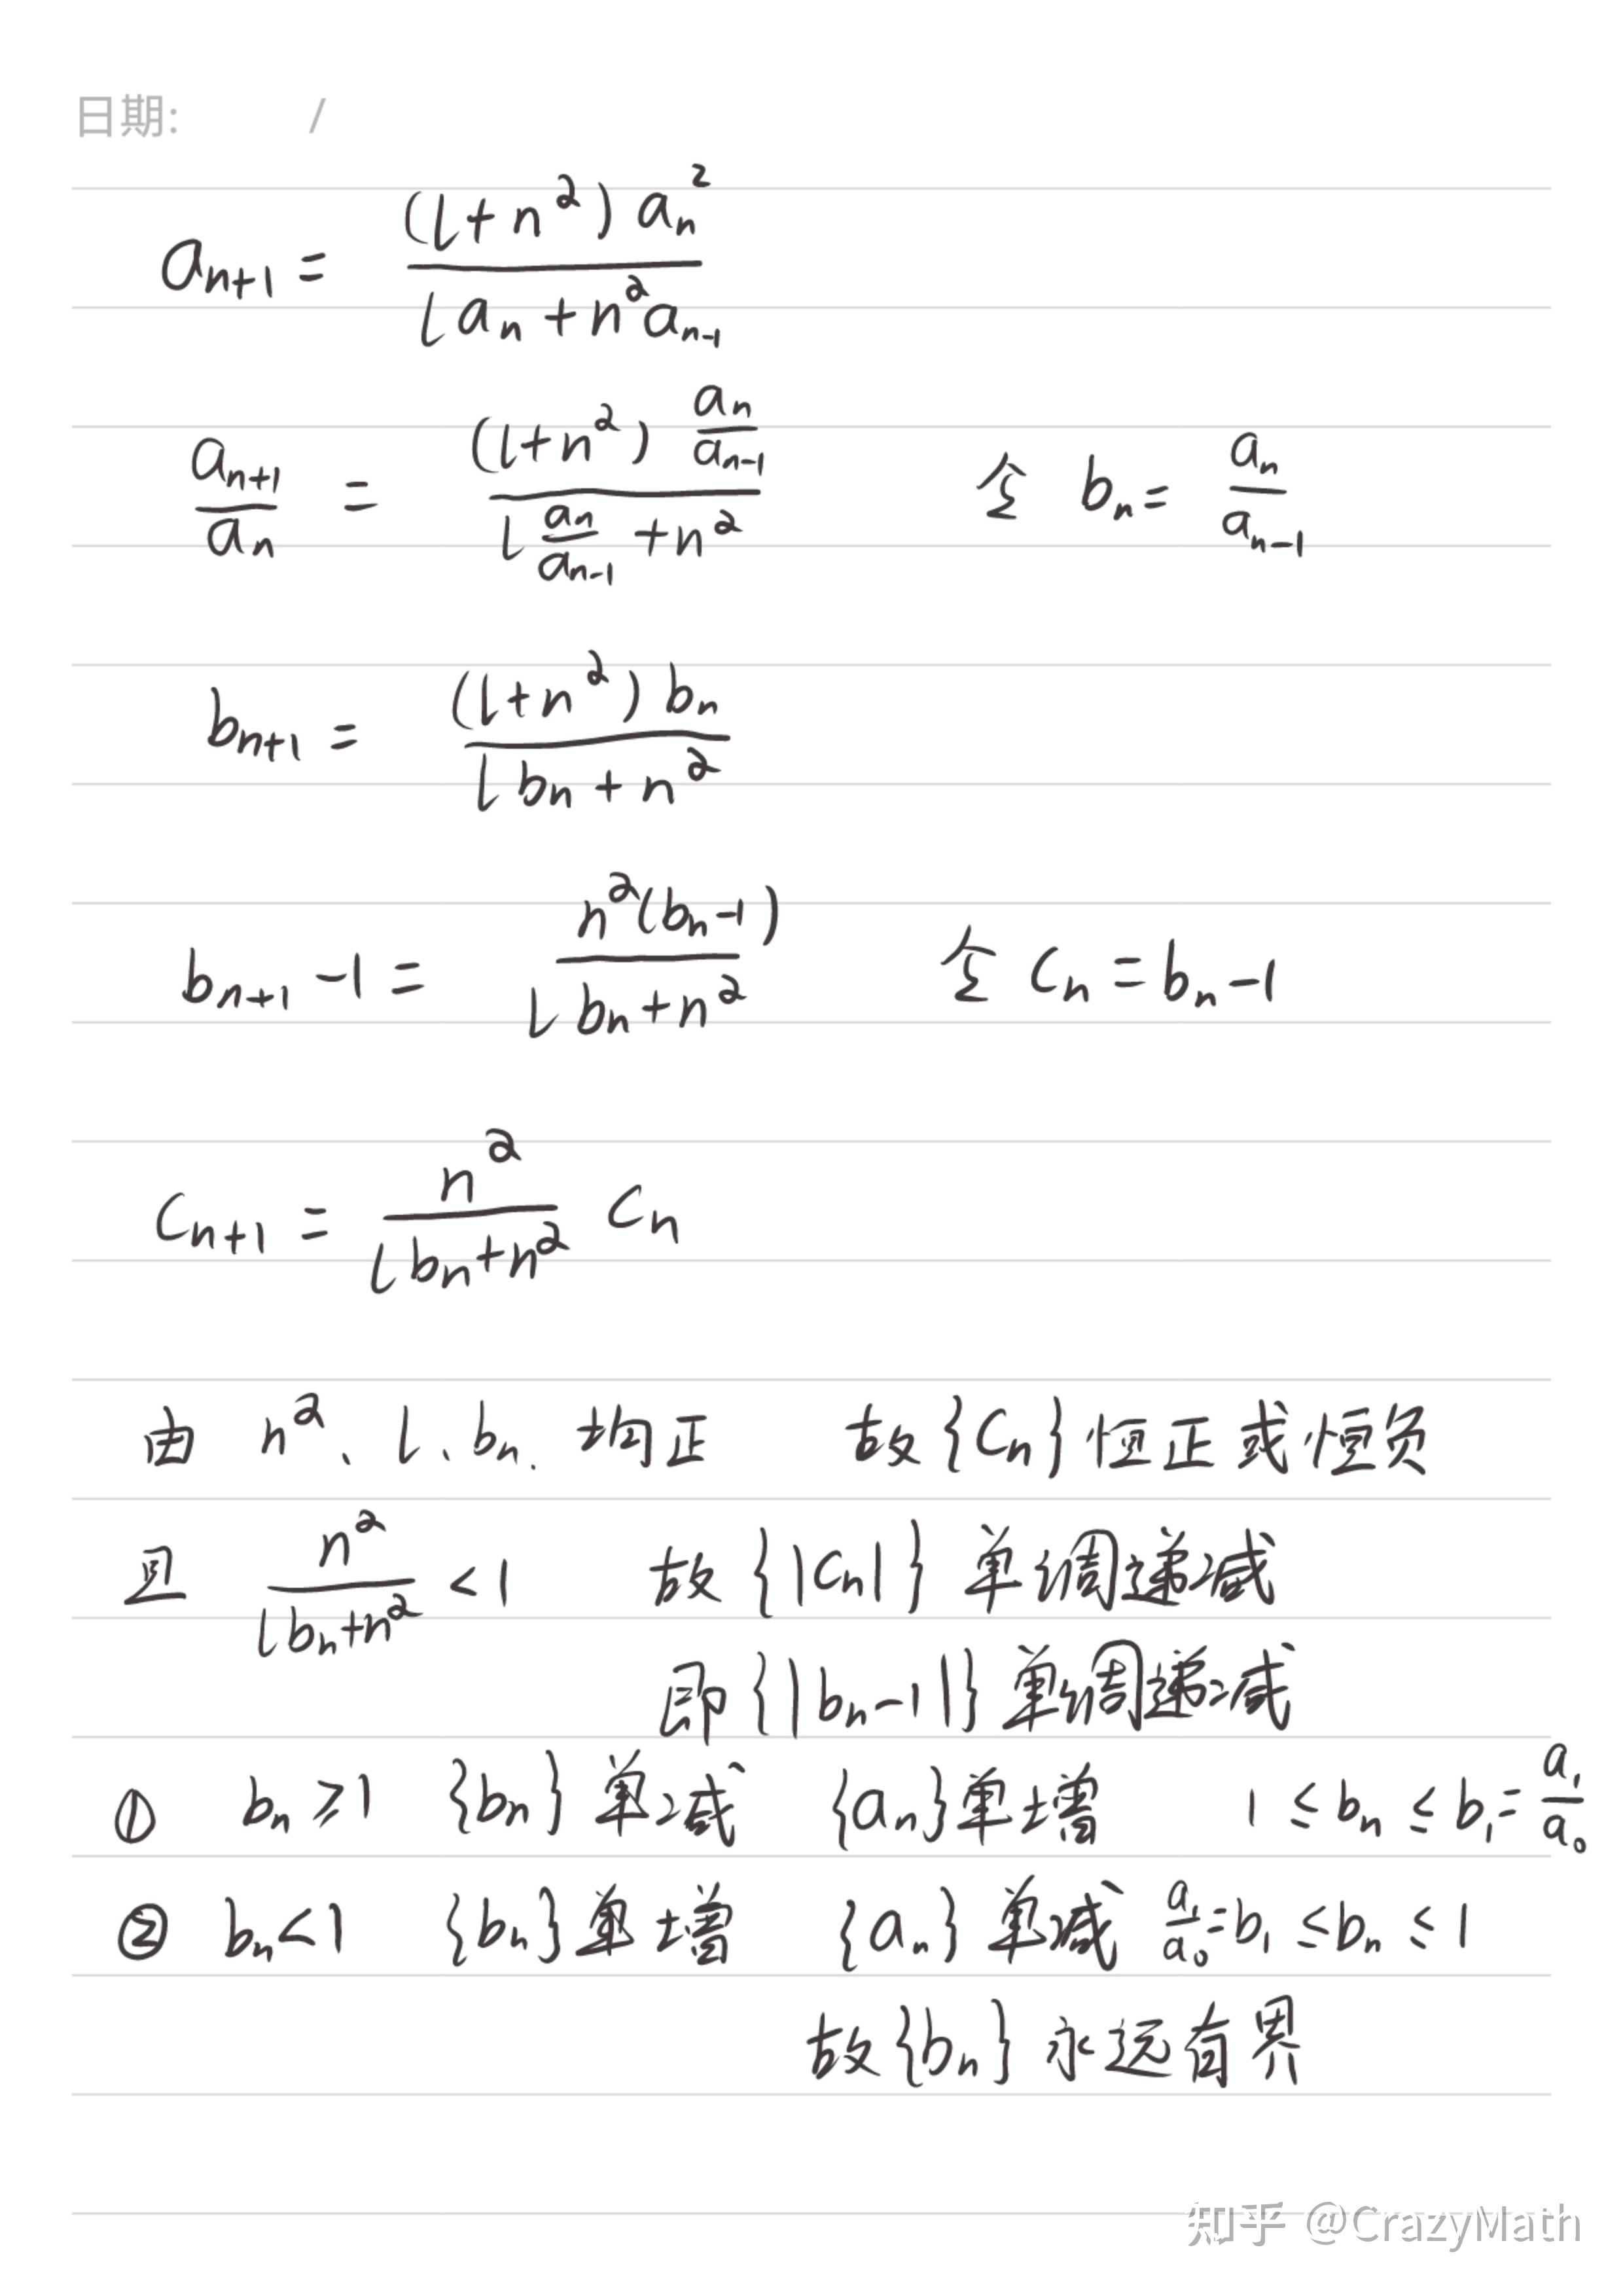 日期: /
a_{n+1} = \frac{(l+n^2) a_n^2}{l a_n + n^2 a_{n-1}}
\frac{a_{n+1}}{a_n} = \frac{(l+n^2) \frac{a_n}{a_{n-1}}}{l \frac{a_n}{a_{n-1}} + n^2} 令 b_n = \frac{a_n}{a_{n-1}}
b_{n+1} = \frac{(l+n^2) b_n}{l b_n + n^2}
b_{n+1} - 1 = \frac{n^2(b_n-1)}{l b_n + n^2} 令 c_n = b_n - 1
c_{n+1} = \frac{n^2}{l b_n + n^2} c_n
由 n^2、l、b_n. 均正 故{c_n}恒正或恒负
且 \frac{n^2}{l b_n + n^2} < 1 故{|c_n|}单调递减
即{|b_n-1|}单调递减
① b_n ⩾ 1 {b_n}单减 {a_n}单增 1 ≤ b_n ≤ b_1 = \frac{a_1}{a_0}
② b_n < 1 {b_n}单增 {a_n}单减 \frac{a_1}{a_0} = b_1 ≤ b_n ≤ 1
故{b_n}永远有界
知乎 @CrazyMath